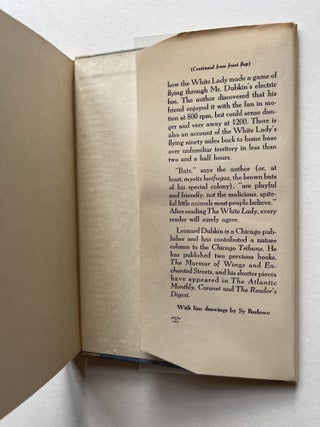 (Continued from front flap)
how the White Lady made a game of
flying through Mr. Dubkin's electric
fan. The author discovered that his
friend enjoyed it with the fan in mo-
tion at 800 rpm, but could sense dan-
ger and veer away at 1200. There is
also an account of the White Lady's
flying ninety miles back to home base
over unfamiliar territory in less than
two and a half hours.
"Bats," says the author (or, at
least, myotis lucifugus, the brown bats
of his special colony), "are playful
and friendly, not the malicious, spite-
ful little animals most people believe."
After reading The White Lady, every
reader will surely agree.
Leonard Dubkin is a Chicago pub-
lisher and has contributed a nature
column to the Chicago Tribune. He
has published two previous books,
The Murmur of Wings and En-
chanted Streets, and his shorter pieces
have appeared in The Atlantic
Monthly, Coronet and The Reader's
Digest.
With line drawings by Sy Barlowe